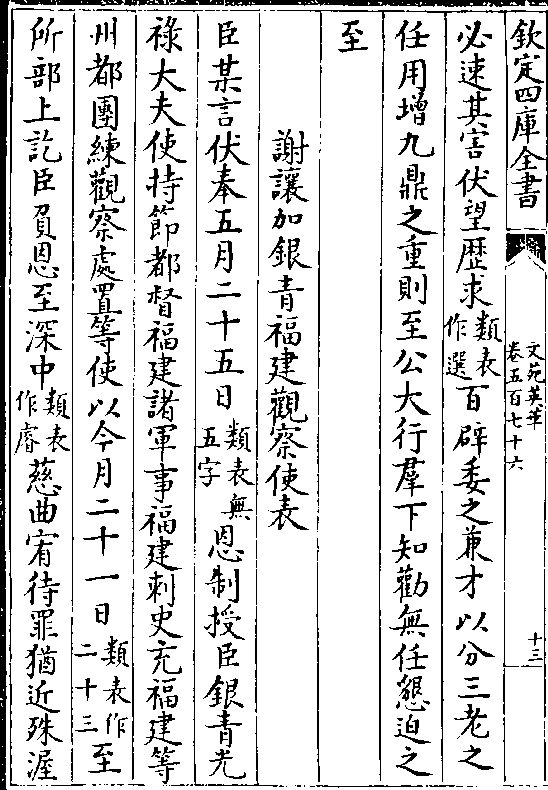 欽定四庫全書
文苑英華
卷五百七十六
十三
必速其害伏望歴求類表作選百辟委之兼才以分三老之
任用增九鼎之重則至公大行羣下知勸無任懇迫之
至
謝讓加銀青福建觀察使表
臣某言伏奉五月二十五日類表無五字恩制授臣銀青光
祿大夫使持節都督福建諸軍事福建刺史充福建等
州都團練觀察處置等使以今月二十一日類表作二十三至
所部上訖臣負恩至深中類表作睿慈曲宥待罪猶近殊渥